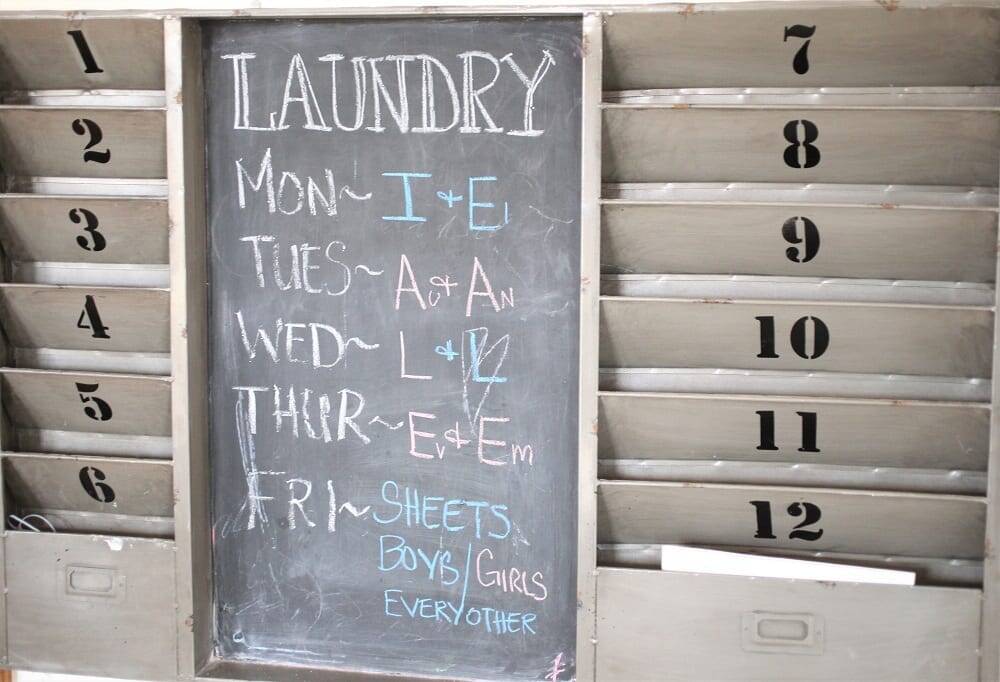 1
2
3
4
5
6
LAUNDRY
MON~ I & E
TUES~ AU & AN
WED~ L & L
THUR~ EV & EM
FRI~ SHEETS
BOYS/GIRLS
EVERY OTHER
7
8
9
10
11
12